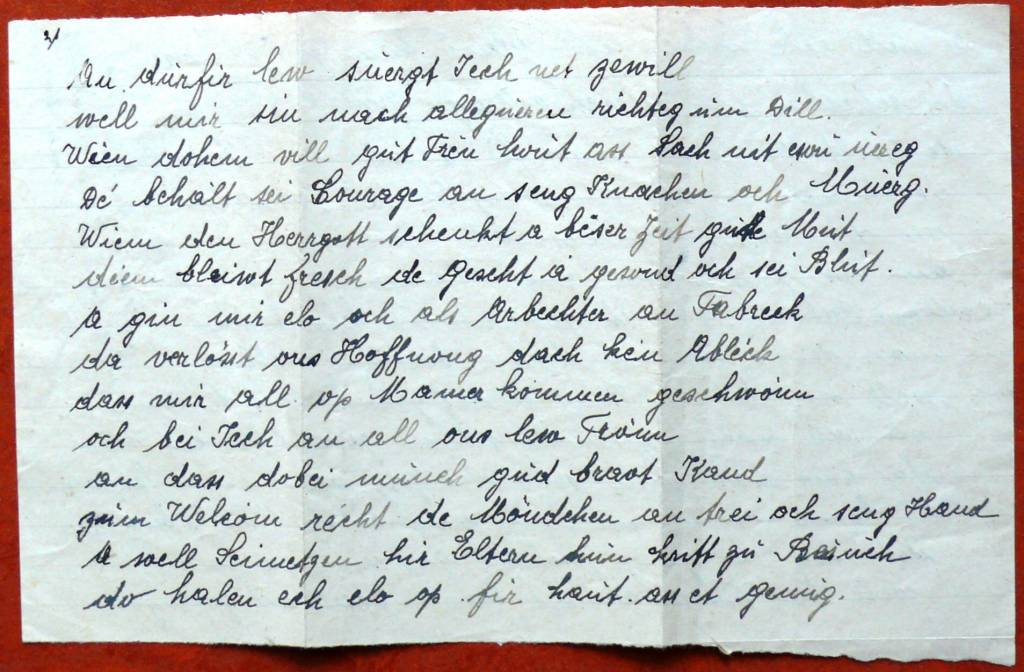 2/
An dürfir lew süergt Iech net zevill
well mir sin nach allegueren richteg üm Dill.
Wien dohem vill güt Freü hwit ass Sach nit esvü üereg
Dé behält sei Courage an seng Knachen och Müerg.
Wiem den Herrgott schenkt a béser Zeit güde Müt
diem bleiwt fresch de Gescht a gesond och sei Blüt.
A gin mir elo och als Arbechter an Fabreck
da verlösst ons Hoffnong dach kein Abléck
dass mir all op Mamer kommen geschwönn
och bei Iech an all ons lew Frönn
an dass dobei münch güd bravt Kand
züm Welcöm recht de Möndchen an trei och seng Hand
A well Seimetzen hir Eltern hün hritt zü
do halen ech elo op fir haut. ass et genug.